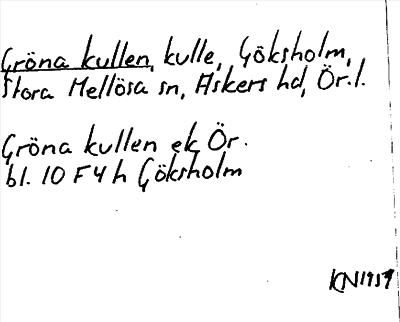 Gröna kullen, kulle, Göksholm,
Stora Mellösa sn, Askers hd, Ör.l.
Gröna kullen ek Ör.
bl. 10 F 4 h Göksholm
KN 1959